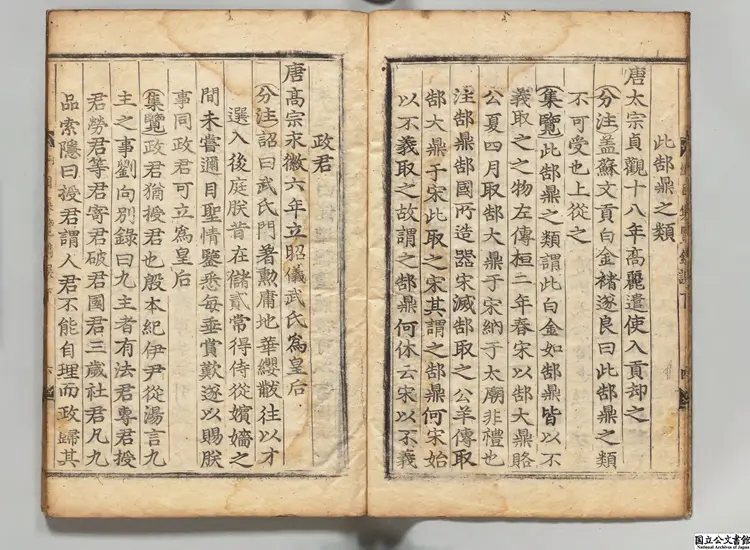 此郜鼎之類
唐太宗貞觀十八年高麗遣使入貢却之
(分注盖蘇文貢白金褚遂良曰此郜鼎之類
不可受也上從之
(集覽此郜鼎之類謂此白金如郜鼎皆以不
義取之之物左傳桓二年春宋以郜大鼎賂
公夏四月取郜大鼎于宋納于太廟非禮也
注郜鼎郜國所造器宋滅郜取之公羊傳取
郜大鼎于宋此取之宋其謂之郜鼎何宋始
以不義取之故謂之郜鼎何休云宋以不義
政君
唐髙宗求徽六年立昭儀武氏爲皇后
(分注詔曰武氏門著勲庸地華纓黻徃以才
選入後庭朕昔在儲貳常得侍從嬪嬙之
間未嘗邇目聖情鑒悉每垂賞歎遂以賜朕
事同政君可立爲皇后
(集覽政君猶授君也殷本紀伊尹從湯言九
主之事劉向別錄曰九主者有法君專君授
君勞君等君寄君破君國君三歲社君凡九
品索隱曰授君謂人君不能自理而政歸其
国立公文書館
National Archives of Japan